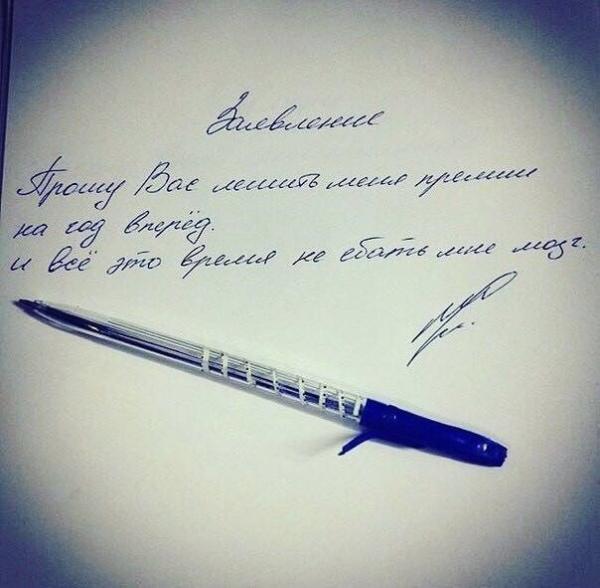 Заявление
Прошу Вас лишить меня премии
на год вперёд.
и всё это время не ебать мне мозг.